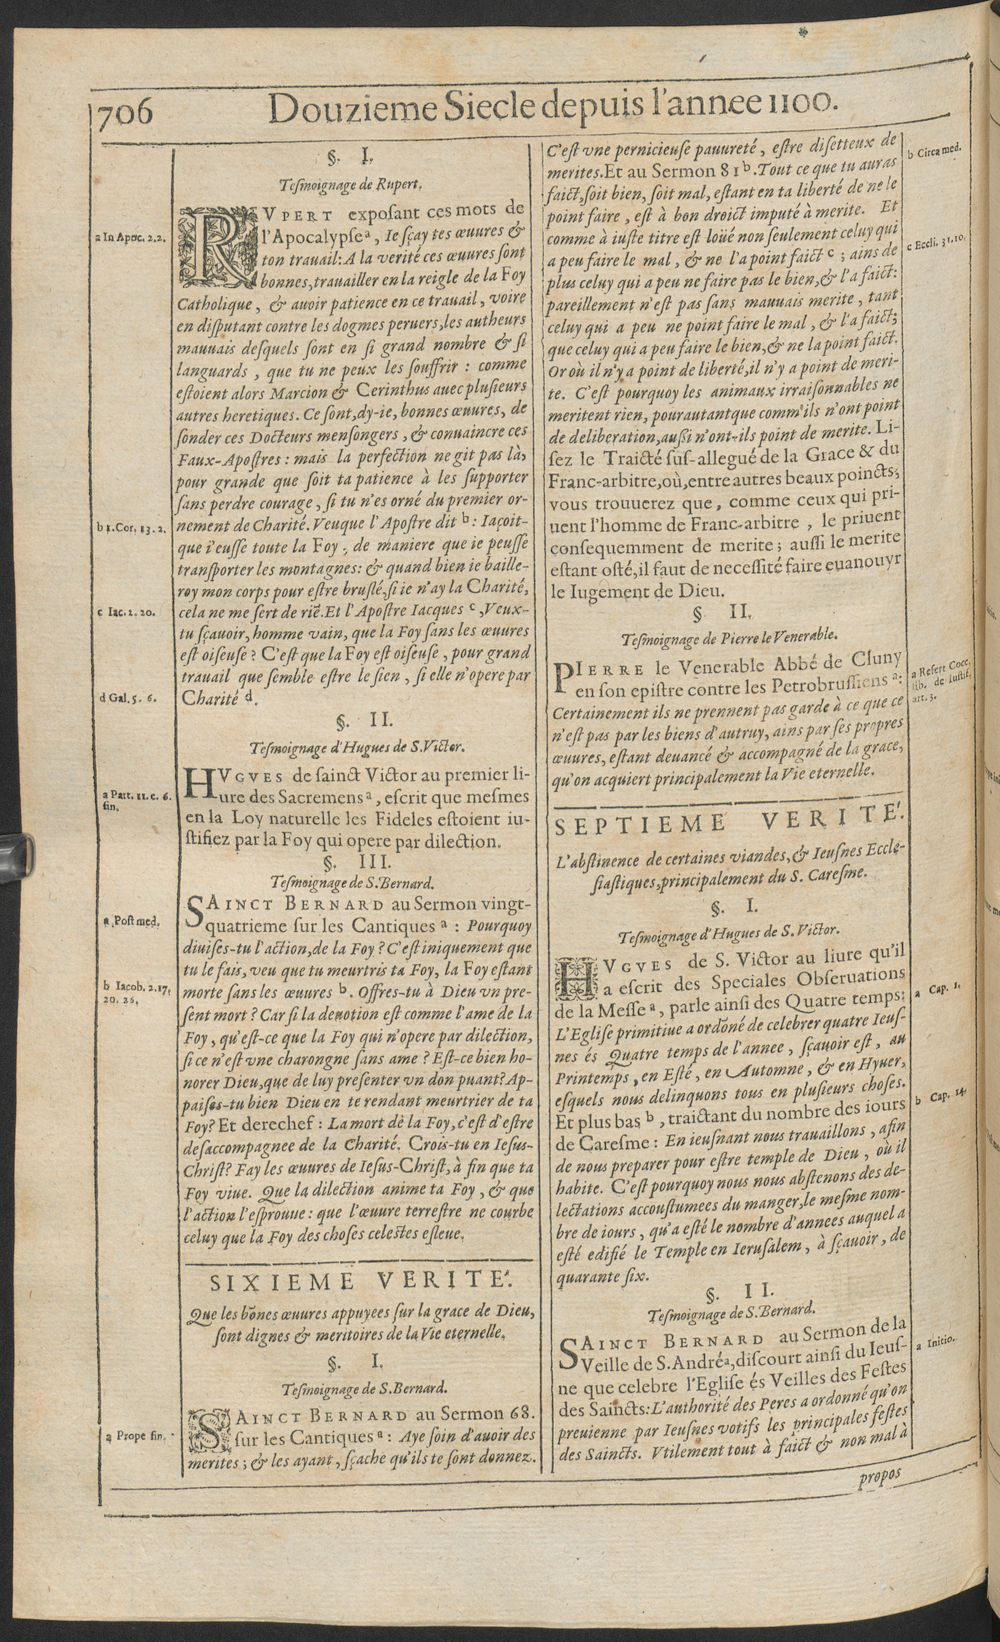 706 Douzieme Siecle depuis l'annee 1100.
§. I.
Tesmoignage de Rupert.
a In Apoc. 2.2.
RVPERT exposant ces mots de
l'Apocalypseᵃ, Ie sçay tes œuures &
ton trauail: A la verité ces œuures sont
bonnes, trauailler en la reigle de la Foy
Catholique, & auoir patience en ce trauail, voire
en disputant contre les dogmes peruers, les autheurs
mauuais desquels sont en si grand nombre & si
languards, que tu ne peux les souffrir : comme
estoient alors Marcion & Cerinthus auec plusieurs
autres heretiques. Ce sont, dy-ie, bonnes œuures, de
sonder ces Docteurs mensongers, & conuaincre ces
Faux-Apostres : mais la perfection ne git pas là,
pour grande que soit ta patience à les supporter
sans perdre courage, si tu n'es orné du premier or-
b 1. Cor. 13. 2.
nement de Charité. Veuque l'Apostre dit ᵇ : Iaçoit-
que i'eusse toute la Foy, de maniere que ie peusse
transporter les montagnes: & quand bien ie baille-
roy mon corps pour estre bruslé, si ie n'ay la Charité,
c Iac. 2. 20.
cela ne me sert de riẽ. Et l'Apostre Iacques ᶜ, Veux-
tu sçauoir, homme vain, que la Foy sans les œuures
est oiseuse ? C'est que la Foy est oiseuse, pour grand
trauail que semble estre le sien, si elle n'opere par
d Gal. 5. 6.
Charité ᵈ.
§. II.
Tesmoignage d'Hugues de S. Victor.
a Part. 11. c. 6.
fin.
HVGVES de sainct Victor au premier li-
ure des Sacremensᵃ, escrit que mesmes
en la Loy naturelle les Fideles estoient iu-
stifiez par la Foy qui opere par dilection.
§. III.
Tesmoignage de S. Bernard.
a Post med.
SAINCT BERNARD au Sermon vingt-
quatrieme sur les Cantiques ᵃ : Pourquoy
diuises-tu l'action, de la Foy ? C'est iniquement que
tu le fais, veu que tu meurtris ta Foy, la Foy estant
b Iacob. 2. 17.
20. 26.
morte sans les œuures ᵇ. Offres-tu à Dieu vn pre-
sent mort ? Car si la deuotion est comme l'ame de la
Foy, qu'est-ce que la Foy qui n'opere par dilection,
si ce n'est vne charongne sans ame ? Est-ce bien ho-
norer Dieu, que de luy presenter vn don puant? Ap-
paises-tu bien Dieu en te rendant meurtrier de ta
Foy? Et derechef : La mort de la Foy, c'est d'estre
desaccompagnee de la Charité. Crois-tu en Iesus-
Christ? Fay les œuures de Iesus-Christ, à fin que ta
Foy viue. Que la dilection anime ta Foy, & que
l'action l'esprouue : que l'œuure terrestre ne courbe
celuy que la Foy des choses celestes esleue.
SIXIEME VERITE'.
Que les bõnes œuures appuyees sur la grace de Dieu,
sont dignes & meritoires de la Vie eternelle.
§. I.
Tesmoignage de S. Bernard.
a Prope fin.
SAINCT BERNARD au Sermon 68.
sur les Cantiques ᵃ : Aye soin d'auoir des
merites ; & les ayant, sçache qu'ils te sont donnez.
C'est vne pernicieuse pauureté, estre disetteux de
b Circa med.
merites. Et au Sermon 81 ᵇ. Tout ce que tu auras
faict, soit bien, soit mal, estant en ta liberté de ne le
point faire, est à bon droict imputé à merite. Et
comme à iuste titre est loüé non seulement celuy qui
c Eccli. 31. 10.
a peu faire le mal, & ne l'a point faict ᶜ ; ains de
plus celuy qui a peu ne faire pas le bien, & l'a faict:
pareillement n'est pas sans mauuais merite, tant
celuy qui a peu ne point faire le mal, & l'a faict;
que celuy qui a peu faire le bien, & ne la point faict.
Or où il n'y a point de liberté, il n'y a point de meri-
te. C'est pourquoy les animaux irraisonnables ne
meritent rien, pourautantque comm'ils n'ont point
de deliberation, aussi n'ont-ils point de merite. Li-
sez le Traicté sus-allegué de la Grace & du
Franc-arbitre, où, entre autres beaux poincts,
vous trouuerez que, comme ceux qui pri-
uent l'homme de Franc-arbitre, le priuent
consequemment de merite ; aussi le merite
estant osté, il faut de necessité faire euanouyr
le Iugement de Dieu.
§ II.
Tesmoignage de Pierre le Venerable.
a Refert Cocc.
lib. de Iustif.
art. 3.
PIERRE le Venerable Abbé de Cluny
en son epistre contre les Petrobrussiens ᵃ:
Certainement ils ne prennent pas garde à ce que ce
n'est pas par les biens d'autruy, ains par ses propres
œuures, estant deuancé & accompagné de la grace,
qu'on acquiert principalement la Vie eternelle.
SEPTIEME VERITE'.
L'abstinence de certaines viandes, & Ieusnes Eccle-
siastiques, principalement du S. Caresme.
§. I.
Tesmoignage d'Hugues de S. Victor.
HVGVES de S. Victor au liure qu'il
a escrit des Speciales Obseruations
a Cap. 1.
de la Messe ᵃ, parle ainsi des Quatre temps:
L'Eglise primitiue a ordõné de celebrer quatre Ieus-
nes és Quatre temps de l'annee, sçauoir est, au
Printemps, en Esté, en Automne, & en Hyuer,
esquels nous delinquons tous en plusieurs choses.
b Cap. 14.
Et plus bas ᵇ, traictant du nombre des iours
de Caresme : En ieusnant nous trauaillons, afin
de nous preparer pour estre temple de Dieu, où il
habite. C'est pourquoy nous nous abstenons des de-
lectations accoustumees du manger, le mesme nom-
bre de iours, qu'a esté le nombre d'annees auquel a
esté edifié le Temple en Ierusalem, à sçauoir, de
quarante six.
§. II.
Tesmoignage de S. Bernard.
a Initio.
SAINCT BERNARD au Sermon de la
Veille de S. Andréᵃ, discourt ainsi du Ieus-
ne que celebre l'Eglise és Veilles des Festes
des Saincts: L'authorité des Peres a ordonné qu'on
preuienne par Ieusnes votifs les principales festes
des Saincts. Vtilement tout à faict & non mal à
propos